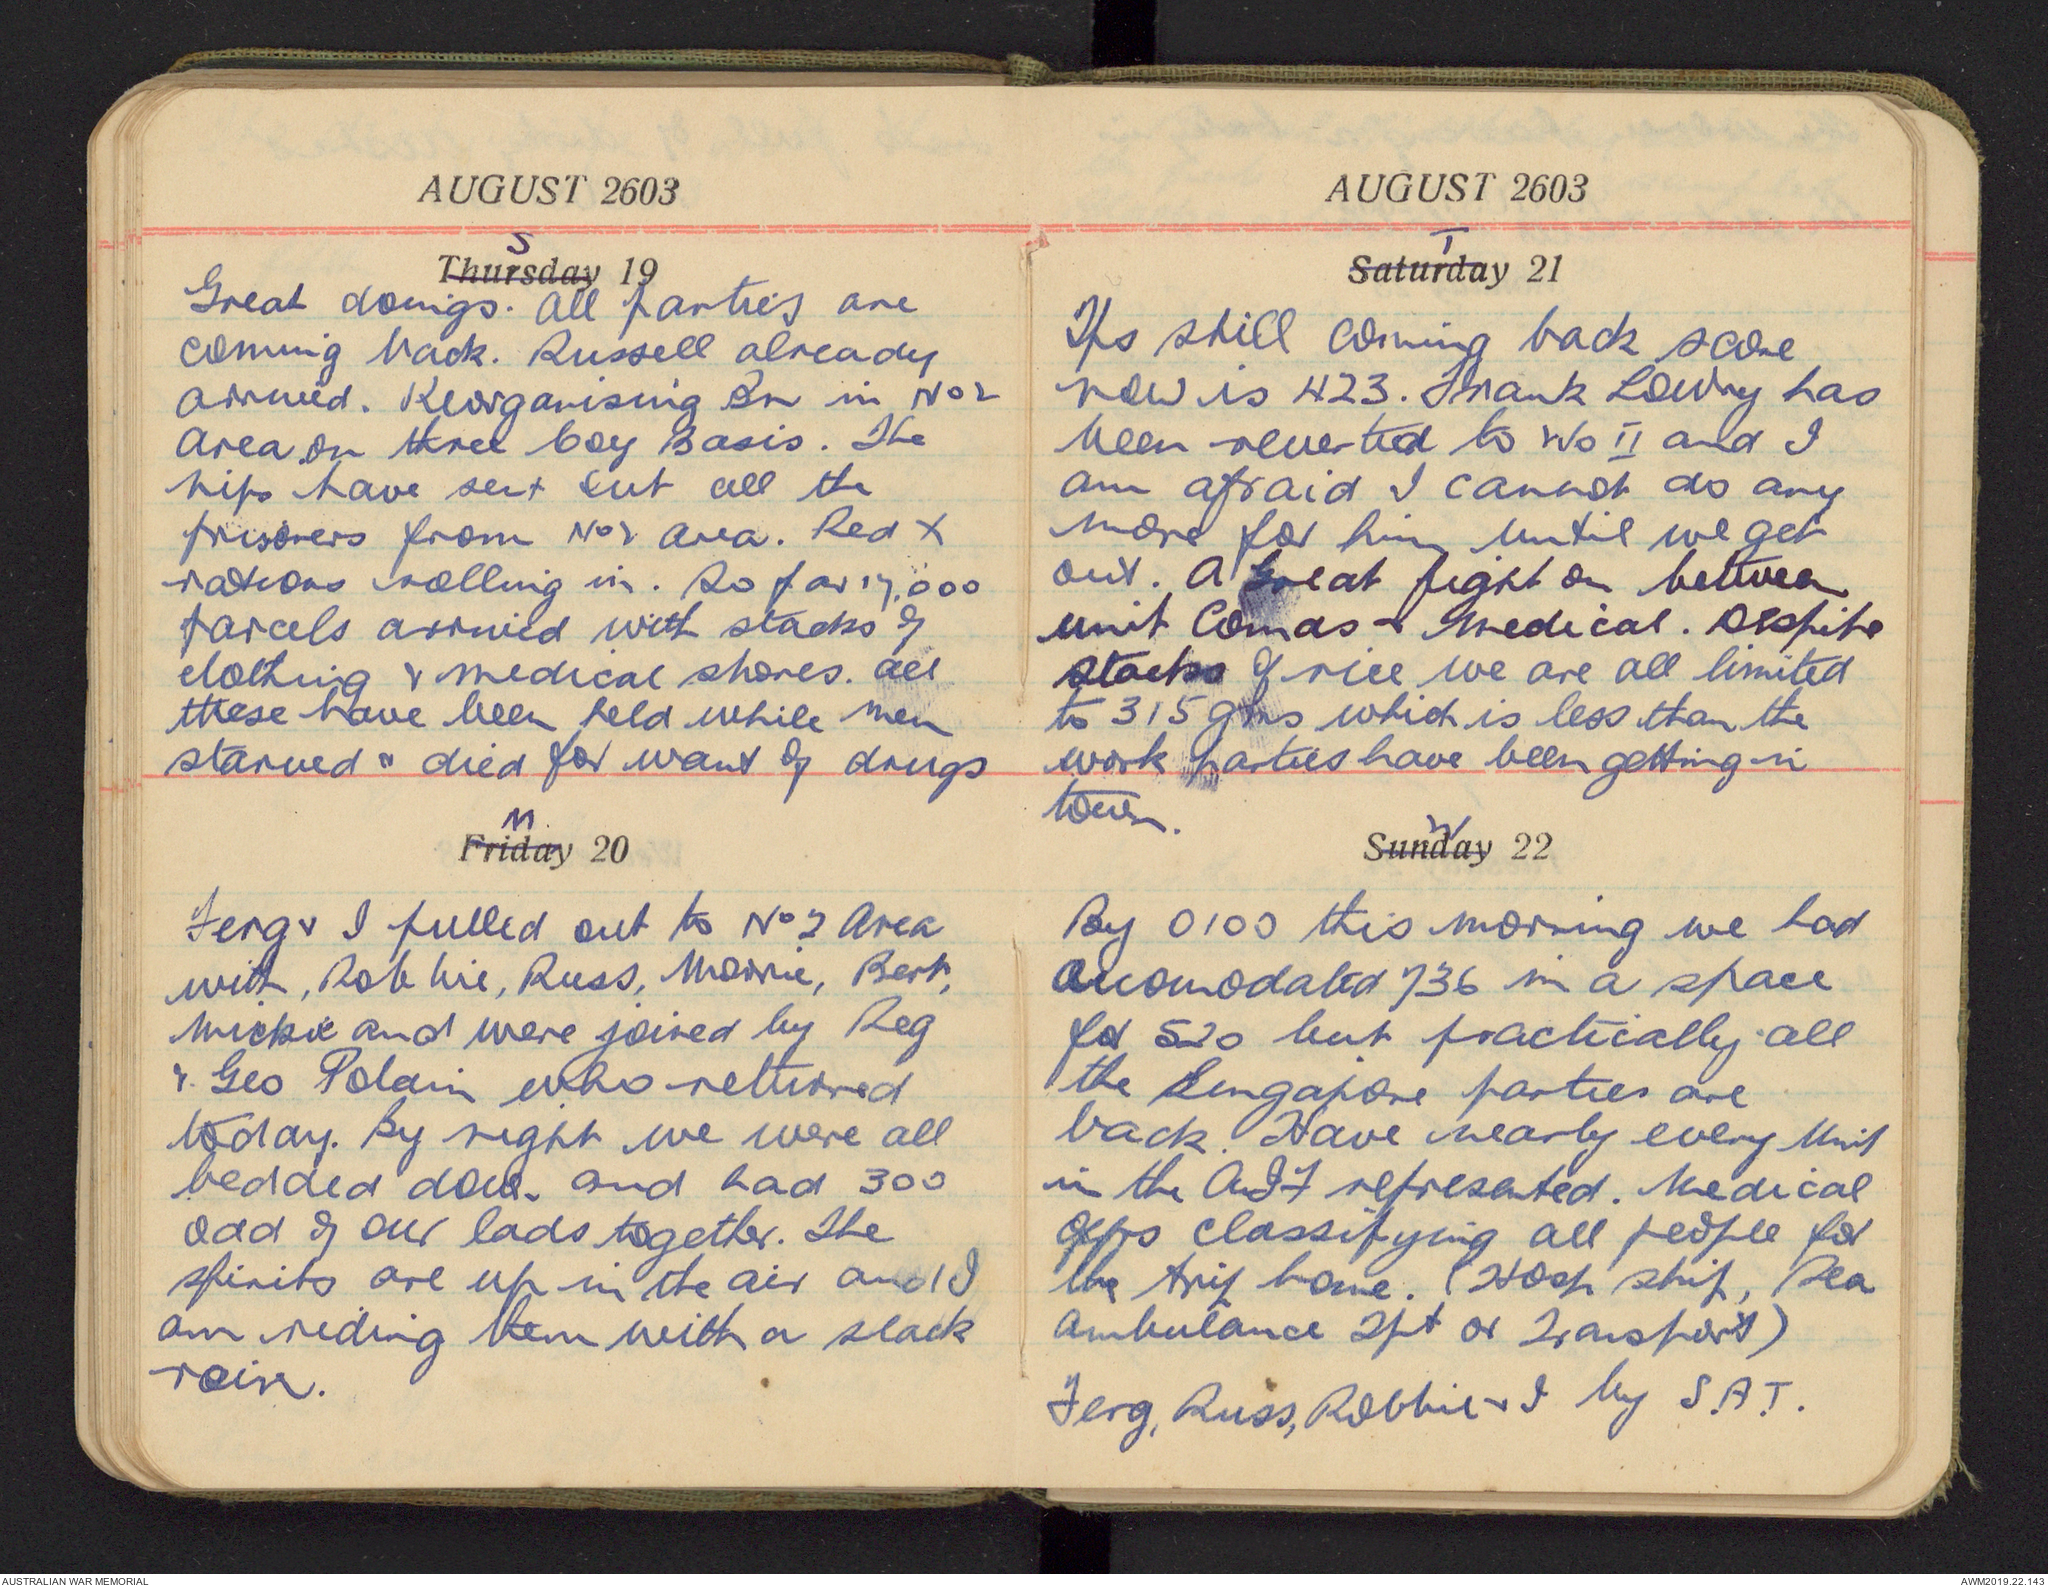 AUGUST 2603
S
Thursday 19
Great doings. All parties are
coming back. Russell already
arrived. Reorganising Bn in No 2
Area on three boy Basis. The
nips have sent out all the
prisoners from No 2 area. Red X
rations rolling in. So far 17,000
parcels arrived with stacks of
clothing & medical stores. All
these have been held while men
starved & died for want of drugs
M
Friday 20
Ferg & I pulled out to No 2 Area
with, Robbie, Russ, Morrie, Bert,
Mickie and were joined by Reg
& Geo Polain who returned
today. By night we were all
bedded down and had 300
odd of our lads together. The
spirits are up in the air and I
am riding them with a slack
rein.
AUGUST 2603
T
Saturday 21
Tps still coming back score
now is 423. Frank Lowry has
been reverted to No II and I
am afraid I cannot do any
more for him until we get
out. A great fight on between
unit Comds & Medical. Despite
stacks of rice we are all limited
to 315 gms which is less than the
work parties have been getting in
town.
W
Sunday 22
By 0100 this morning we had
acomodated 736 in a space
for 520 but practically all
the Singapore parties are
back. Have nearly every Unit
in the AIF represented. Medical
offrs classifying all people for
the trip home. (Hosp ship, Sea
ambulance Tpt or Transport)
Ferg, Russ, Robbie & I by S.A.T.
AUSTRALIAN WAR MEMORIAL
AWM2019.22.143